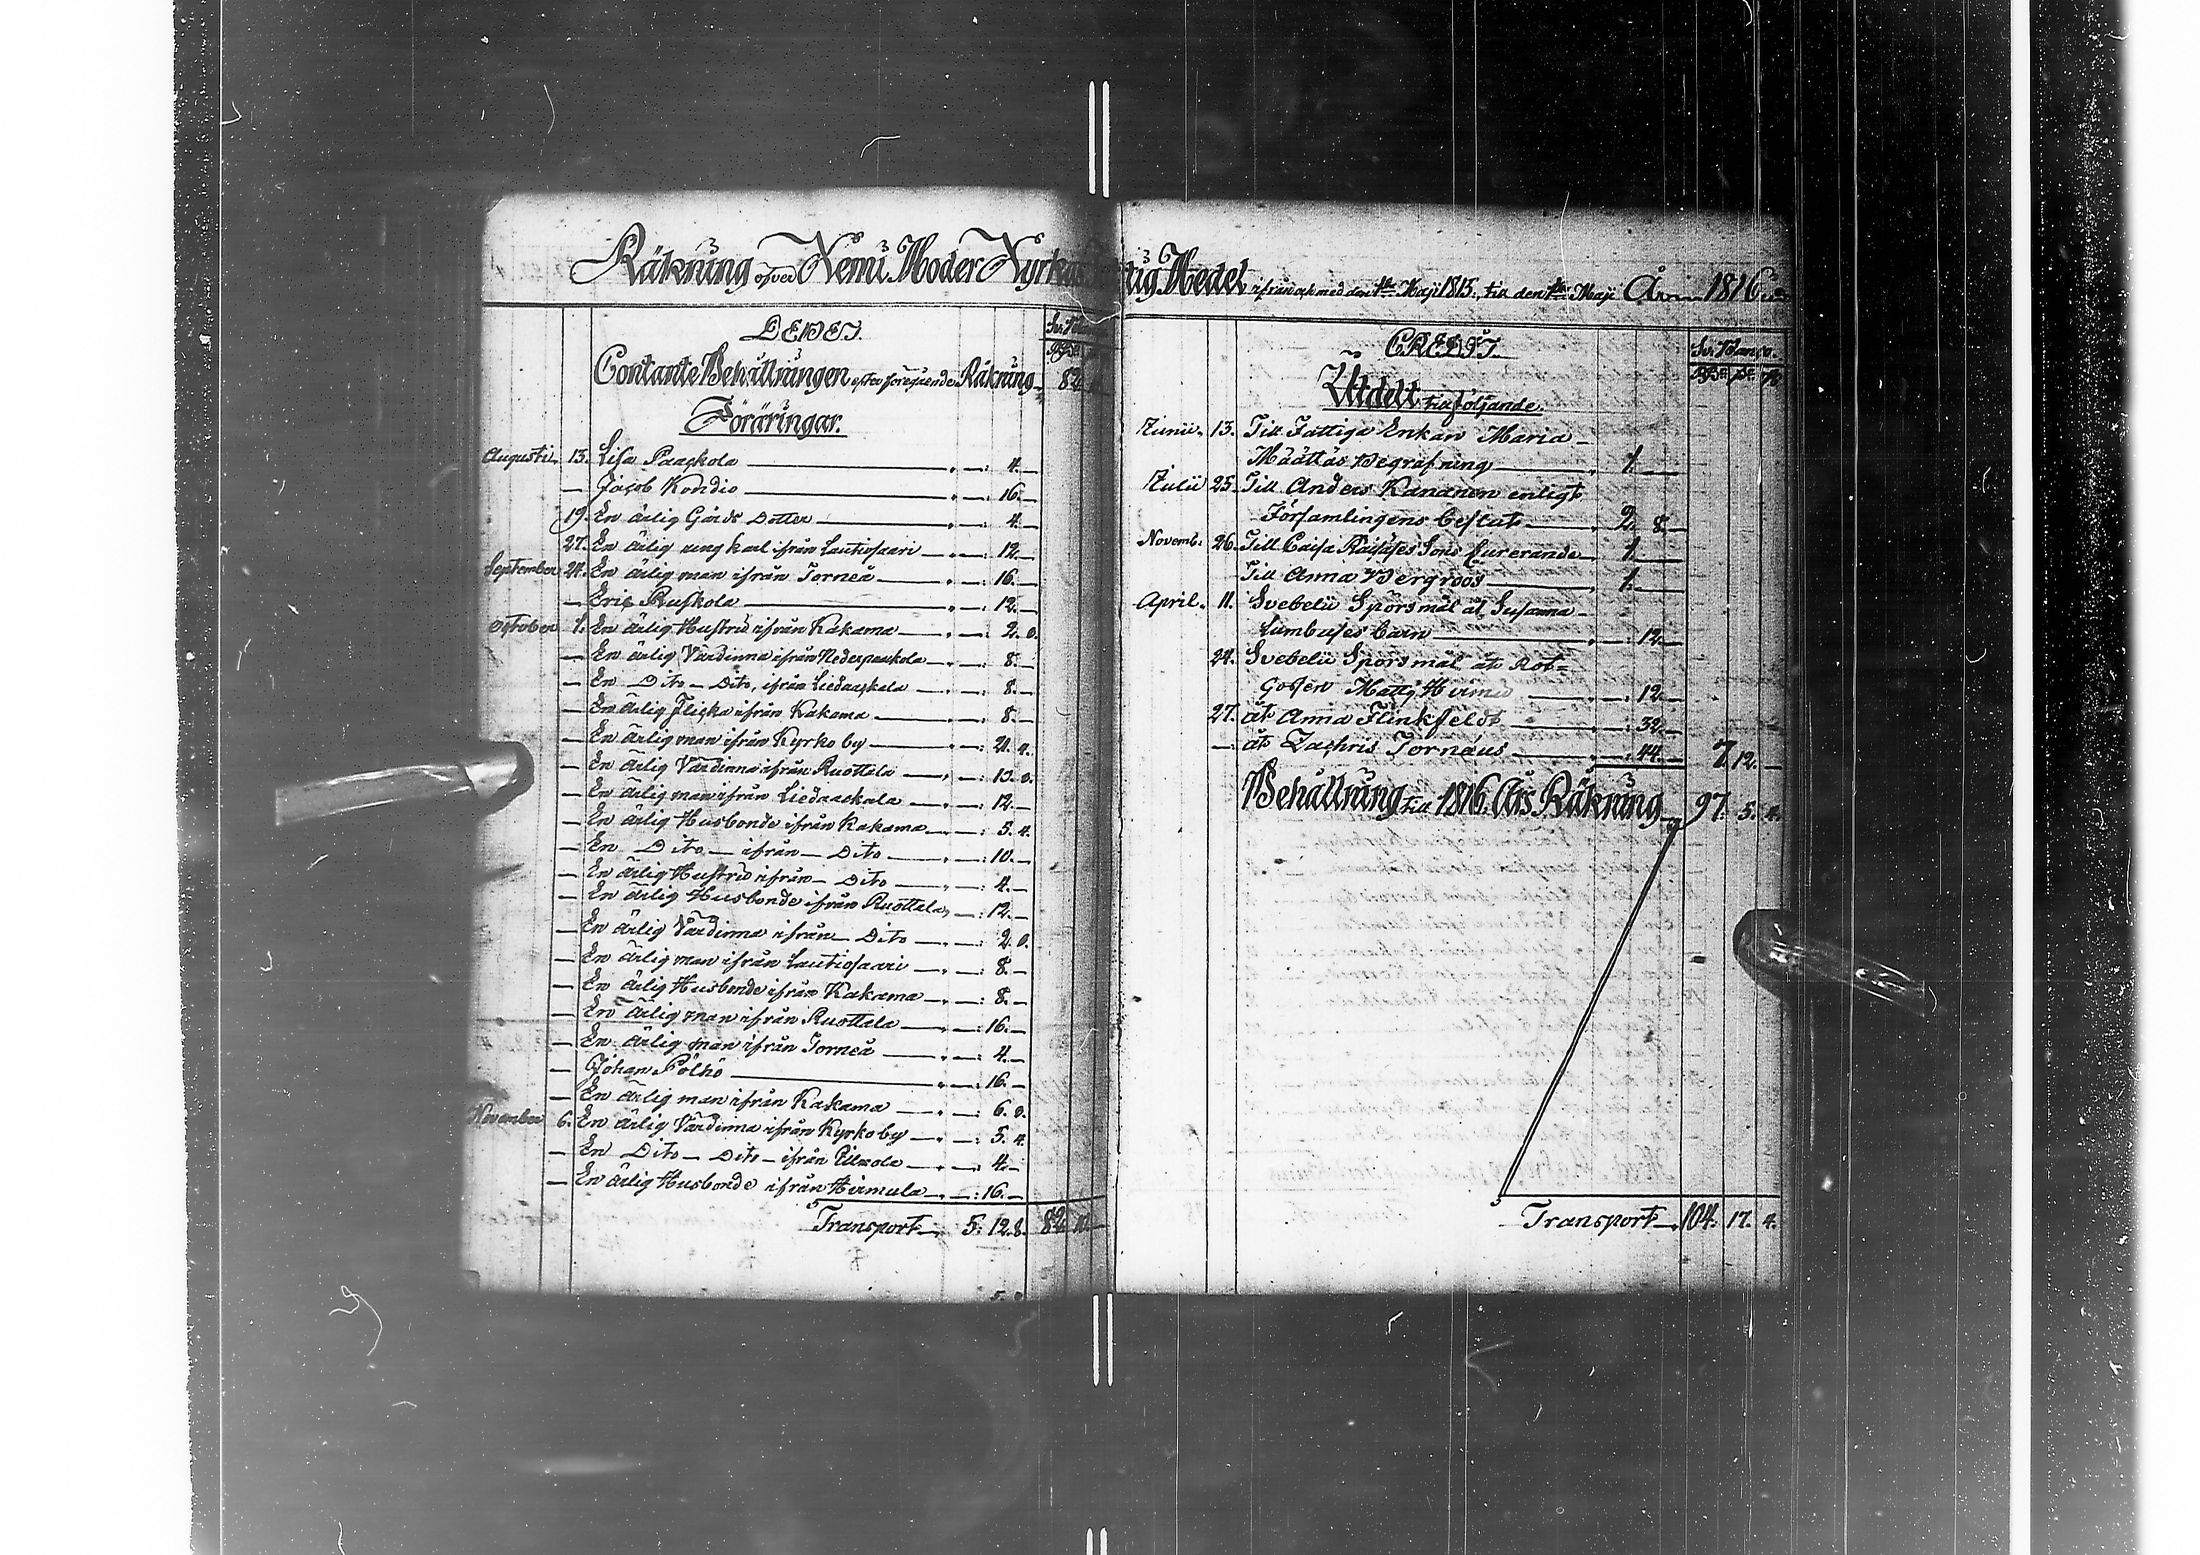 Räkning öfver Kemi Moder Kyrkas
DEBET.
Contante Behållningen efter föregående Räkning 82
Föräringar.
Augusti 13. Lisa Paaskola — 4. —
— Jacob Kondio — 16. —
19. En ärlig Gårds Dotter — 4. —
27. En ärlig ung karl ifrån Lautiosaari — 12. —
September 24. En ärlig man ifrån Torneå — 16. —
— Eric Ruskola — 12. —
October 1. En ärlig Hustru ifrån Kakama — 2. 8.
— En ärlig Värdinna ifrån Nederpaakola — 8. —
— En Dito — Dito, ifrån Liedaskala — 8. —
— En ärlig Flicka ifrån Kakama — 8. —
— En ärlig man ifrån Kyrkoby — 21. 4.
— En ärlig Värdinna ifrån Ruottala — 13. 8.
— En ärlig man ifrån Liedaskala — 12. —
— En ärlig Husbonde ifrån Kakama — 5. 4.
— En Dito — ifrån — Dito — 10. —
— En ärlig Hustru ifrån — Dito — 4. —
— En ärlig Husbonde ifrån Ruottala — 12. —
— En ärlig Värdinna ifrån — Dito — 2. 8.
— En ärlig man ifrån Lautiosaari — 8. —
— En ärlig Husbonde ifrån Kakama — 8. —
— En ärlig man ifrån Ruottala — 16. —
— En ärlig man ifrån Torneå — 4. —
— Johan Pölhö — 16. —
— En ärlig man ifrån Kakama — 6. 8.
November 6. En ärlig Värdinna ifrån Kyrkoby — 5. 4.
— En Dito — Dito — ifrån — 4. —
— En ärlig Husbonde ifrån Hirmula — 16. —
Transport — 5. 12. 8. 82
tig Medel ifrån och med den 1ste Maji 1815, till den 1ste Maji År 1816
CREDIT.
Utdelt till följande.
Junii. 13. Till Fattiga Enkan Maria
Määttäs Begrafning — 1. —
Julii 25. Till Anders Kananen enligt
Församlingens beslut — 2. 8. —
Novemb. 26. Till Caisa Räisäses Sons Curerande — 1. —
Till Anna Bergroos — 1. —
April. 11. Svebelii Spörsmål åt Susanna
Lumbuses barn — 12. —
24. Svebelii Spörsmål åt Rot-
Gossen Matts Hirmu — 12. —
27. åt Anna Flinkfeldt — 32. —
— åt Zachris Tornæus — 44. — 7. 12. —
Behållning till 1816. Års Räkning — 97. 5. 4.
Transport — 104. 17. 4.